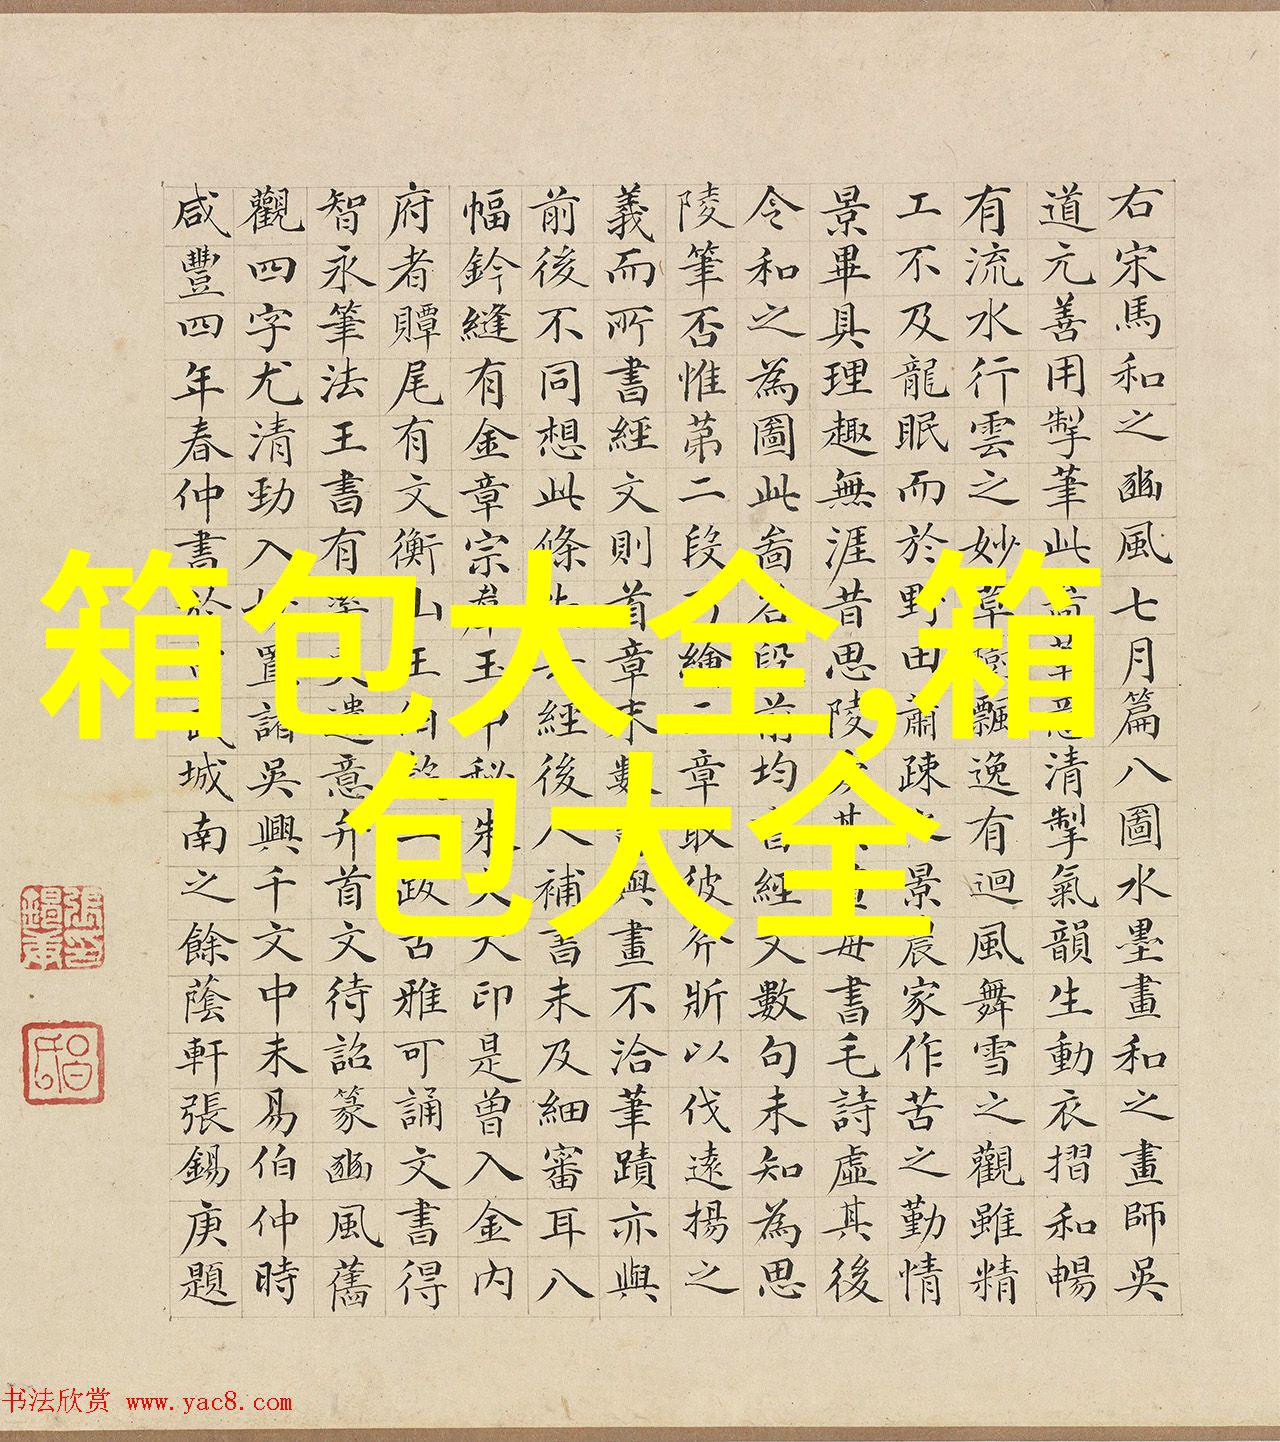 右宋馬和之豳風七月篇八圖水墨畫和之畫師吳
道元善用掣筆此清掣氣韻生動衣摺和暢
有流水行雲之妙草飄逸有迴風舞雪之觀雖精
工不及龍眠而於野田蕭疎之景農家作苦之勤情
景畢具理趣無涯昔思陵其每書毛詩虛其後
令和之為圖此啚各段前均書經文數句未知為思
陵筆否惟第二段可繪二章取彼斧斨以伐遠揚之
義而所書經文則首章末數句與畫不洽筆蹟亦與
前後不同想此條失去經後人補書未及細審耳八
幅鈐縫有金章宗羣玉中秘朱文大印是曾入金內
府者贉尾有文衡山王伯穀二跋古雅可誦文書得
智永筆法王書有遺意弁首文待詔篆豳風舊
觀四字尤清勁入妙置諸吳興千文中未易伯仲時
咸豐四年春仲書於宣武城南之餘蔭軒張錫庚題
箱包大全,箱
包大全
书法欣赏 www.yac8.com